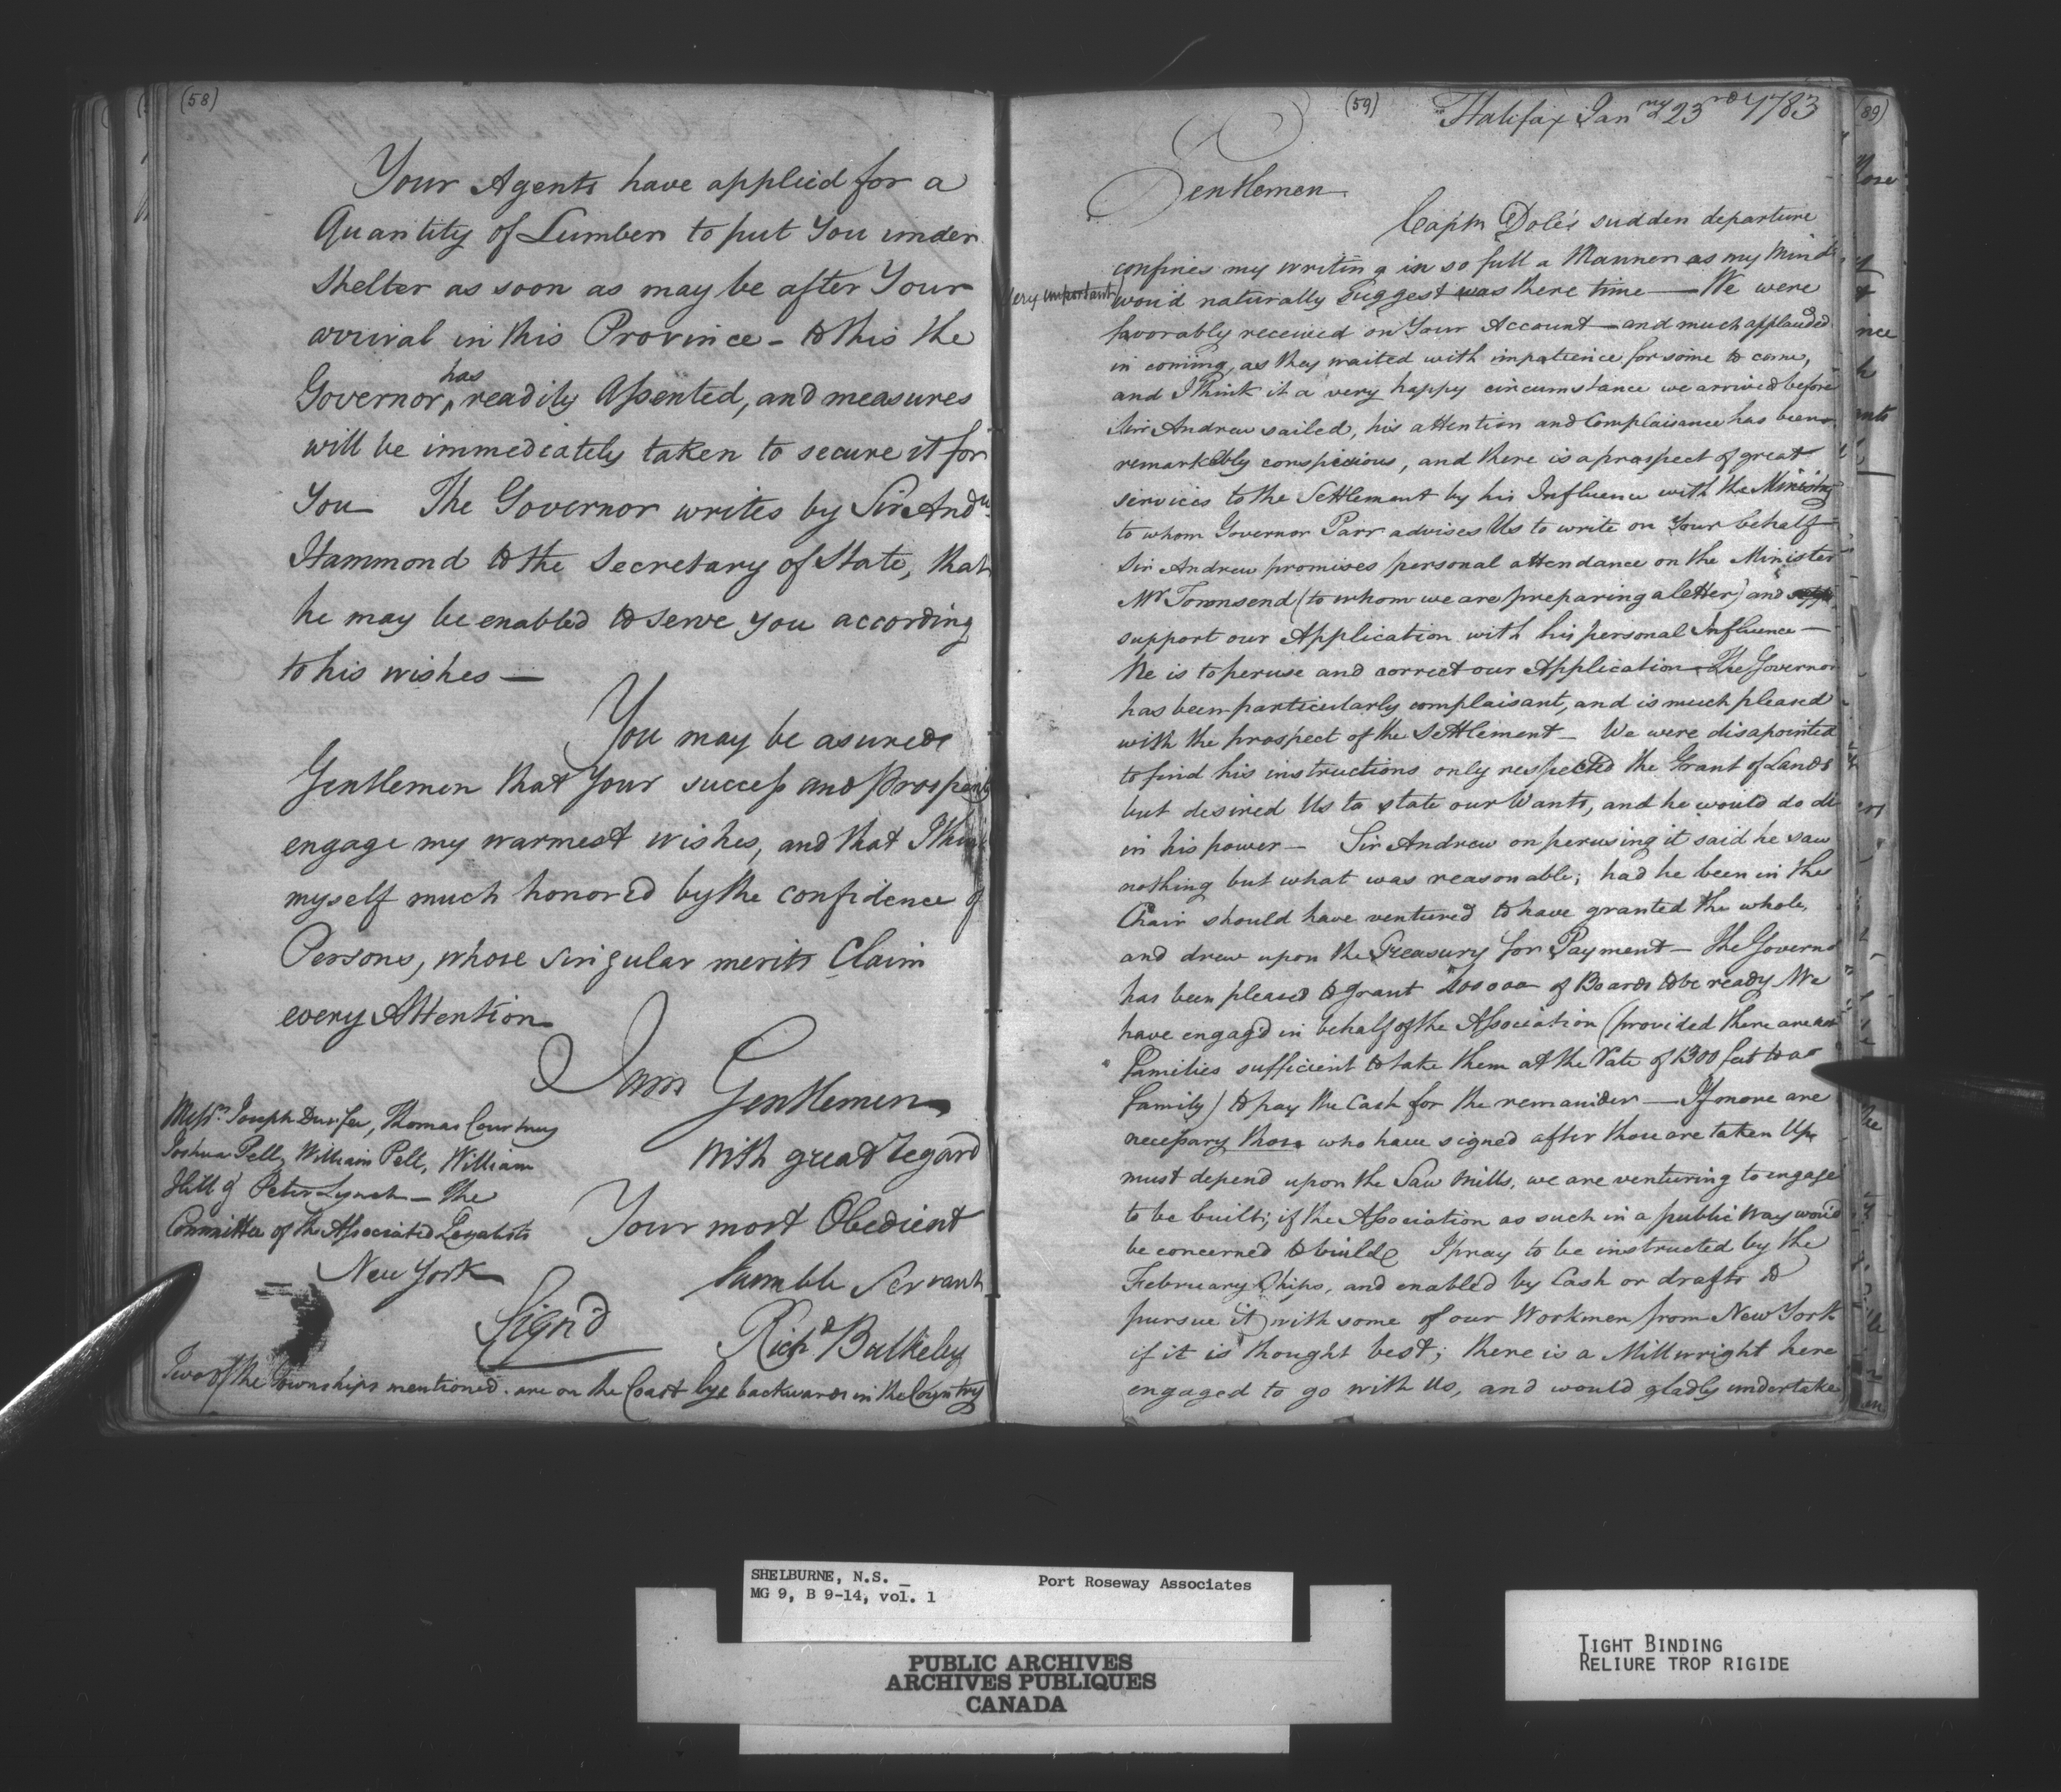 (58)
Your Agents have applied for a
Quantity of Lumber to put You under
Shelter as soon as may be after Your
arrival in this Province - to this the
Governor, has readily Assented, and measures
will be immediately taken to secure it for
You — The Governor writes by Sir Andw
Hammond to the Secretary of State, that
he may be enabled to serve you according
to his wishes —
You may be asured
Gentlemen that Your success and Prosperity
engage my warmest wishes, and that I think
myself much honored by the confidence of
Persons, whose singular merits Claim
every Attention
I am Gentlemen
with great regard
Your most Obedient
humble Servant
Signd Richd Bulkeley
Messrs Joseph Durfee, Thomas Courtney
Joshua Pell, William Pell, William
Hill & Peter Lynch — The
Committee of the Associated Loyalists
New York
Two of the Townships mentioned are on the Coast bye backwards in the Country
(59)
Halifax Janry 23rd 1783
Gentlemen
Captn Dole's sudden departure
confines my writing in so full a Manner as my Mind
very important
wou'd naturally Suggest was there time — We were
favorably received on Your Account — and much applauded
in coming, as they waited with impatience for some to come,
and I think it a very happy circumstance we arrived before
Sir Andrew sailed, his attention and Complaisance has been
remarkably conspicious, and there is a prospect of great
services to the Settlement by his Influence with the Ministry
to whom Governor Parr advises Us to write on Your behalf
Sir Andrew promises personal attendance on the Minister
Mr Townsend (to whom we are preparing a letter) and
support our Application with his personal Influence —
He is to peruse and correct our Application — The Governor
has been particularly complaisant, and is much pleased
with the prospect of the Settlement — We were disapointed
to find his instructions only respected the Grant of Lands
but desired Us to state our Wants, and he would do all
in his power — Sir Andrew on perusing it said he saw
nothing but what was reasonable; had he been in the
Chair should have ventured to have granted the whole,
and drew upon the Treasury for Payment — The Governor
has been pleased to grant 400000 of Boards to be ready We
have engag'd in behalf of the Association (provided there are not
Families sufficient to take them at the Rate of 1300 feet to a
family) to pay the Cash for the remainder — If more are
necessary those who have signed after those are taken Up,
must depend upon the Saw Mills, we are venturing to engage
to be built; if the Association as such in a public Way wou'd
be concerned to build I pray to be instructed by the
February Ships, and enabled by Cash or drafts to
pursue it with some of our Workmen from New York
if it is thought best; there is a Millwright here
engaged to go with Us, and would gladly undertake
(89)
SHELBURNE, N.S. _ Port Roseway Associates
MG 9, B 9-14, vol. 1
PUBLIC ARCHIVES
ARCHIVES PUBLIQUES
CANADA
TIGHT BINDING
RELIURE TROP RIGIDE